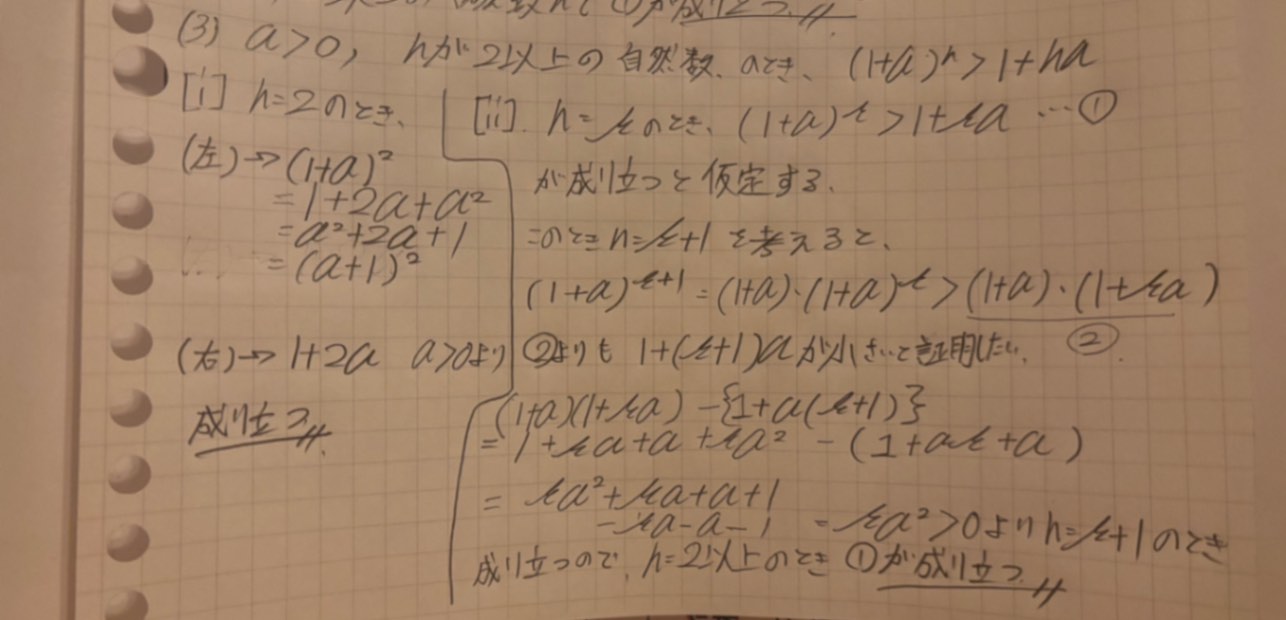 ①が成り立つ
(3) a>0, nが2以上の自然数、のとき、(1+a)^n > 1+na
[i] n=2のとき、
(左)→(1+a)²
=1+2a+a²
=a²+2a+1
=(a+1)²
(右)→1+2a a>0より
成り立つ
[ii] n=kのとき、(1+a)^k > 1+ka …①
が成り立つと仮定する、
このときn=k+1を考えると、
(1+a)^{k+1} = (1+a)・(1+a)^k > (1+a)・(1+ka)
②
②よりも 1+(k+1)aが小さいと証明したい、
(1+a)(1+ka) - {1+a(k+1)}
= 1+ka+a+ka² - (1+ak+a)
= ka²+ka+a+1
-ka-a-1 = ka²>0よりn=k+1のとき
成り立つので、n=2以上のとき①が成り立つ